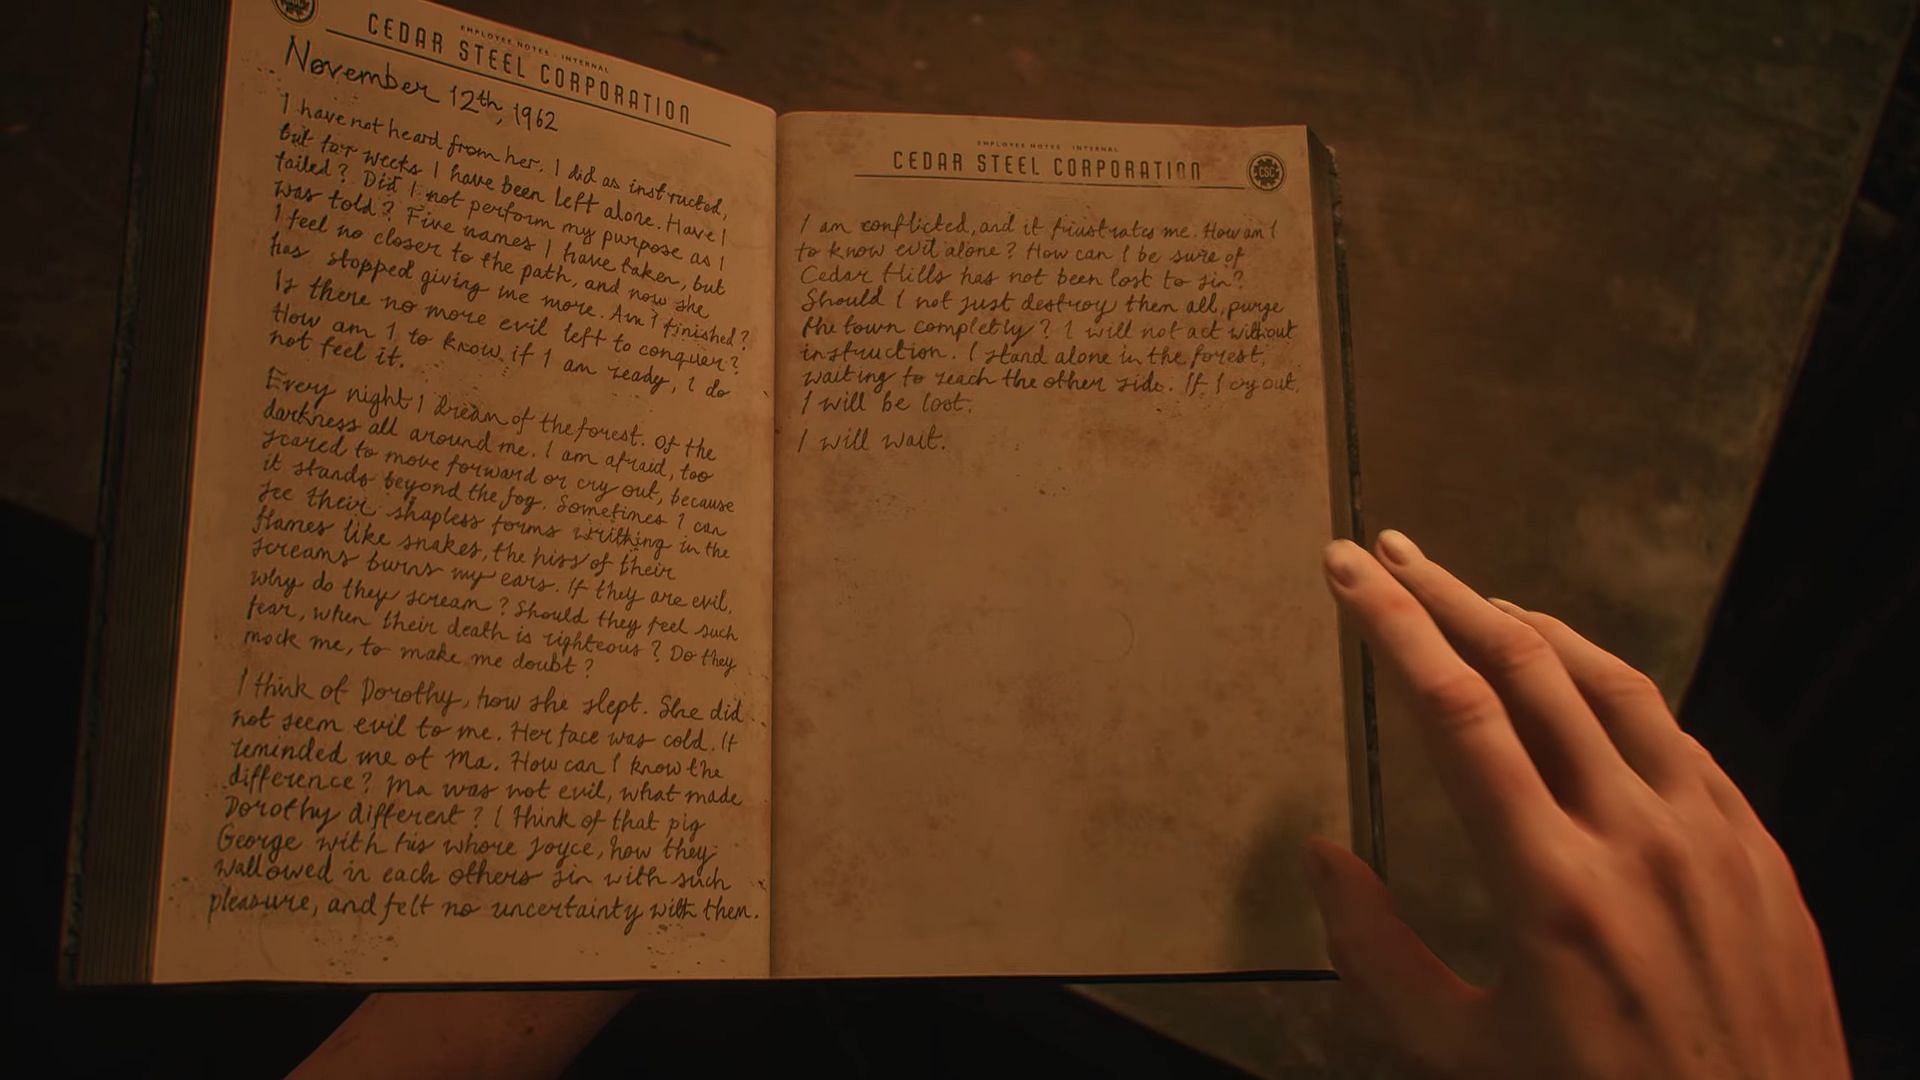 EMPLOYEE NOTES - INTERNAL
CEDAR STEEL CORPORATION
November 12th, 1962
I have not heard from her. I did as instructed,
but for weeks I have been left alone. Have I
failed? Did I not perform my purpose as I
was told? Five names I have taken, but
I feel no closer to the path, and now she
has stopped giving me more. Am I finished?
Is there no more evil left to conquer?
How am I to know if I am ready, I do
not feel it.
Every night I dream of the forest. Of the
darkness all around me. I am afraid, too
scared to move forward or cry out, because
it stands beyond the fog. Sometimes I can
see their shapless forms writhing in the
flames like snakes, the hiss of their
screams burns my ears. If they are evil,
why do they scream? Should they feel such
fear, when their death is righteous? Do they
mock me, to make me doubt?
I think of Dorothy, how she slept. She did
not seem evil to me. Her face was cold. It
reminded me of Ma. How can I know the
difference? Ma was not evil, what made
Dorothy different? I think of that pig
George with his whore Joyce, how they
wallowed in each others sin with such
pleasure, and felt no uncertainty with them.
EMPLOYEE NOTES - INTERNAL
CEDAR STEEL CORPORATION
CSC
I am conflicted, and it frustrates me. How am I
to know evil alone? How can I be sure of
Cedar Hills has not been lost to sin?
Should I not just destroy them all, purge
the town completly? I will not act without
instruction. I stand alone in the forest,
waiting to reach the other side. If I cry out,
I will be lost.
I will wait.